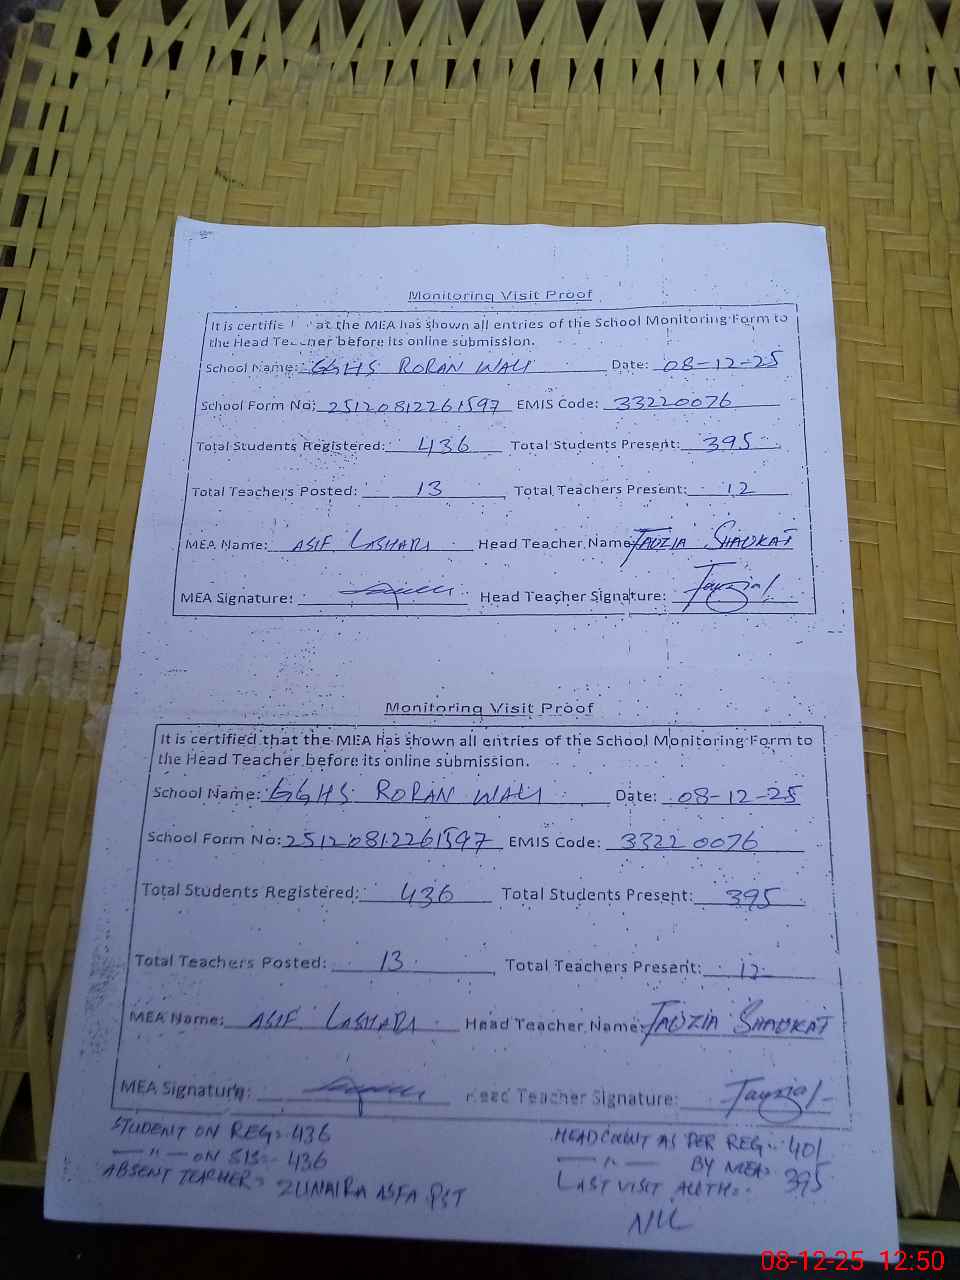 Monitoring Visit Proof
It is certifie at the MEA has shown all entries of the School Monitoring Form to
the Head Teacher before its online submission.
School Name: GGHS RORAN WALI Date: 08-12-25
School Form No: 251208122261597 EMIS Code: 33220076
Total Students Registered: 436 Total Students Present: 395
Total Teachers Posted: 13 Total Teachers Present: 12
MEA Name: ASIF LASHARI Head Teacher Name: FAUZIA SHAUKAT
MEA Signature: Head Teacher Signature:
Monitoring Visit Proof
It is certified that the MEA has shown all entries of the School Monitoring Form to
the Head Teacher before its online submission.
School Name: GGHS RORAN WALI Date: 08-12-25
School Form No: 251208122261597 EMIS Code: 33220076
Total Students Registered: 436 Total Students Present: 395
Total Teachers Posted: 13 Total Teachers Present: 12
MEA Name: ASIF LASHARI Head Teacher Name: FAUZIA SHAUKAT
MEA Signature: Head Teacher Signature:
STUDENT ON REG:- 436 HEADCOUNT AS PER REG:- 401
— " — ON SIS:- 436 — " — BY MEA:- 395
ABSENT TEACHER:- ZUNAIRA ASFA PST LAST VISIT AUTH:-
NIL
08-12-25 12:50